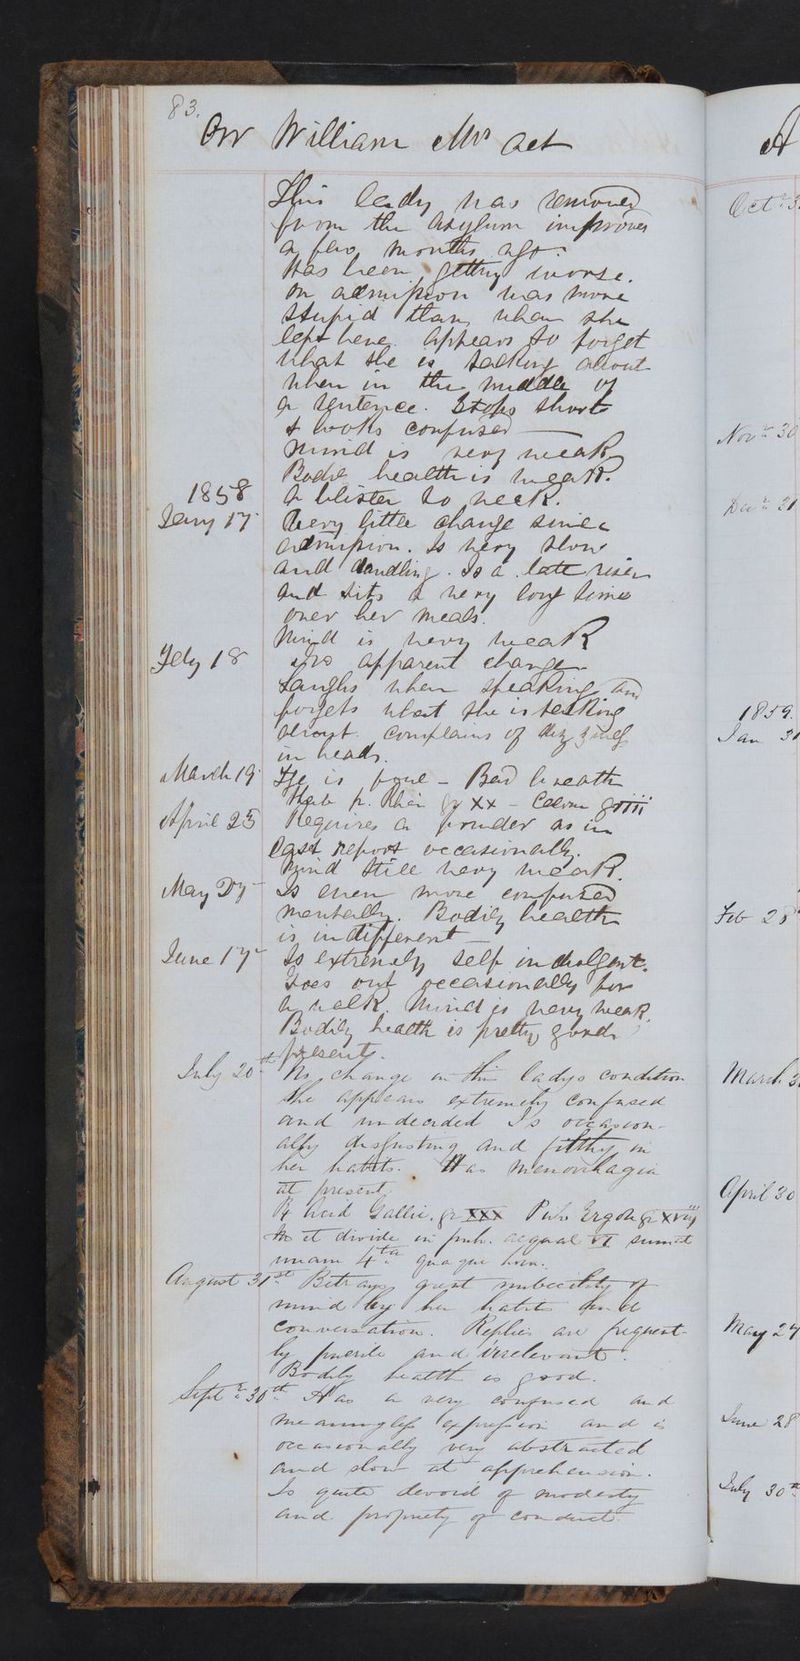 83.
Orr William Mrs aet
This lady was removed
from the Asylum improved
a few months ago.
Has been getting worse.
On admission was more
stupid than when she
left here. Appears to forget
what she is talking about
when in the middle of
a sentence. Stops short
& looks confused
Mind is very weak
Bodil health is weak.
1858
A blister to neck.
Jany 17
Very little change since
admission. Is very slow
and dawdling. Is a late riser
and sits a very long time
over her meals.
Mind is very weak
Feby 18
No apparent change
Laughs when speaking and
forgets what she is talking
about. Complains of
in heads.
March 19
is foul - Bad breath
Hab p. Rhei gr XX - Calom griii
April 25
Requires a powder as in
last report occasionally.
Mind still very weak.
May 27
Is even more confused
mentally. Bodily health
is indifferent
June 17
Is extremely self indulgent.
Goes out occasionally for
a walk. Mind is very weak.
Bodily health is pretty good
present.
July 20th
No change in this ladys condition
She appears extremely confused
and undecided Is occasion-
ally disgusting and filthy in
her habits. Has menorrhagia
at present
R Acid Gallic. gr XXX Pulv Ergotae gr xviij
et divide in pulv. aequal VI sumat
unam 4ta quaque hora.
August 31st
Betrays great imbecility of
mind by her habits and
conversation. Replies are frequent-
ly puerile and irrelevant.
Bodily health is good.
Septr 30th
Has a very confused and
meaningless expression and is
occasionally very abstracted
and slow at apprehension.
Is quite devoid of modesty
and propriety of conduct.
A
Oct 3
Nov 30
Dec 31
1859.
Jan 31
Feb 28
March 3
April 30
May 27
June 28
July 30